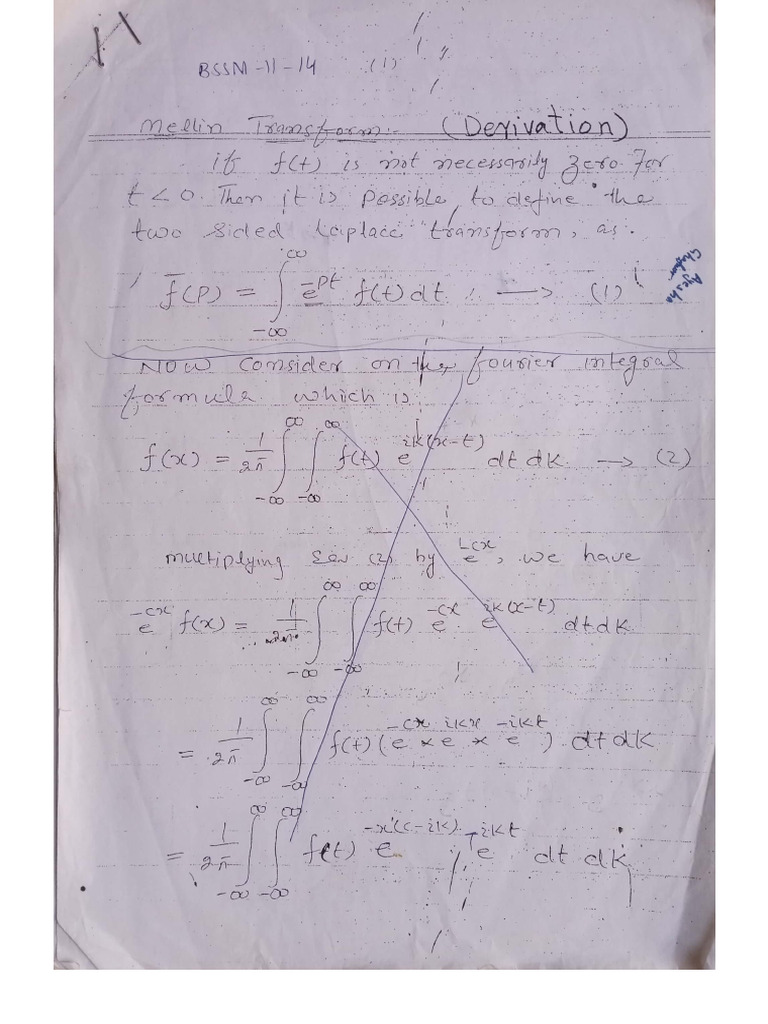 BSSM-11-14 (1)
Mellin Transform:- (Derivation)
if f(t) is not necessarily zero for
t < 0. Then it is possible to define the
two sided Laplace transform, as.
f̄(P) = ∫_{-∞}^{∞} e^{-Pt} f(t) dt, → (1)
Ayesha
Now consider on the fourier integral
formula which is
f(x) = 1/2π ∫_{-∞}^{∞} ∫_{-∞}^{∞} f(t) e^{ik(x-t)} dt dk → (2)
multiplying Eqv (2) by e^{-cx}, we have
e^{-cx} f(x) = 1/2π ∫_{-∞}^{∞} ∫_{-∞}^{∞} f(t) e^{-cx} e^{ik(x-t)} dt dk
= 1/2π ∫_{-∞}^{∞} ∫_{-∞}^{∞} f(t) (e^{-cx} × e^{ikx} × e^{-ikt}) dt dk
= 1/2π ∫_{-∞}^{∞} ∫_{-∞}^{∞} f(t) e^{-x(c-ik)} e^{-ikt} dt dk